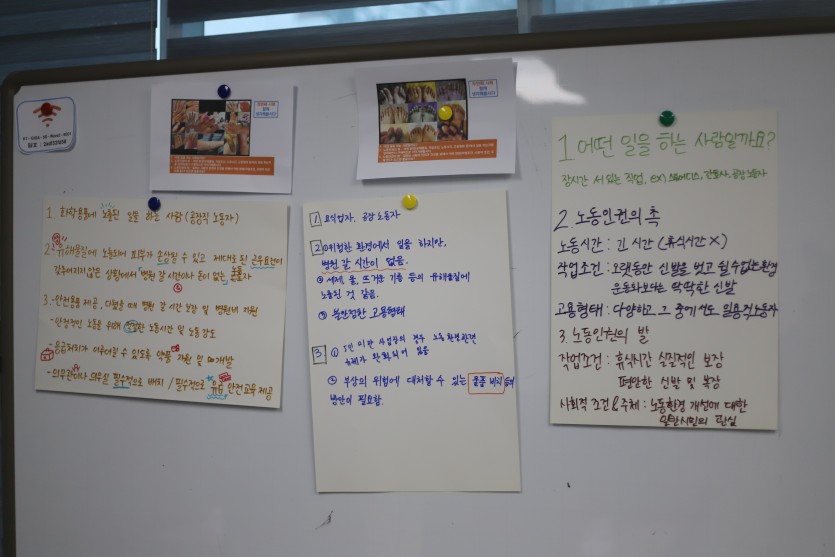 1 화학용품에 노출된 일을 하는 사람 (공장직 노동자)
2. 유해물질에 노출되어 피부가 손상될 수 있고 제대로 된 근무요건이
갖추어지지 않은 상황에서 병원 갈 시간이나 돈이 없는 노동자
3. 안전용품 제공, 다쳤을 때 병원 갈 시간 보장 및 병원비 지원
- 안정적인 노동을 위해 적절한 노동시간 및 노동 강도
- 응급처치가 이루어질 수 있도록 약품 지원 및 재개발
- 의무관이나 의무실 필수적으로 배치 / 필수적으로 유급 안전교육 제공
1 요식업자, 공장 노동자
2 ① 위험한 환경에서 일을 하지만,
병원 갈 시간이 없음.
② 세제, 물, 뜨거운 기름 등의 유해물질에
노출된 것 같음.
③ 불안정한 고용형태
3 ① 5인 미만 사업장의 경우 노동환경관련
② 부상의 위험에 대처할 수 있는 물품 비치 등의
방안이 필요함.
1 어떤 일을 하는 사람일까요?
장시간 서 있는 직업. ex) 스튜어디스, 간호사, 공장 노동자
2. 노동인권의 촉
노동시간 : 긴 시간 (휴식시간 X)
작업조건 : 오랫동안 신발을 벗고 쉴 수 없는 환경
운동화보다는 딱딱한 신발
고용형태 : 다양하고 그 중에서도 일용직노동자
3. 노동인권의 발
작업조건 : 휴식시간 실질적인 보장
편안한 신발 및 복장
사회적 조건 & 주체 : 노동환경 개선에 대한
일반시민의 관심